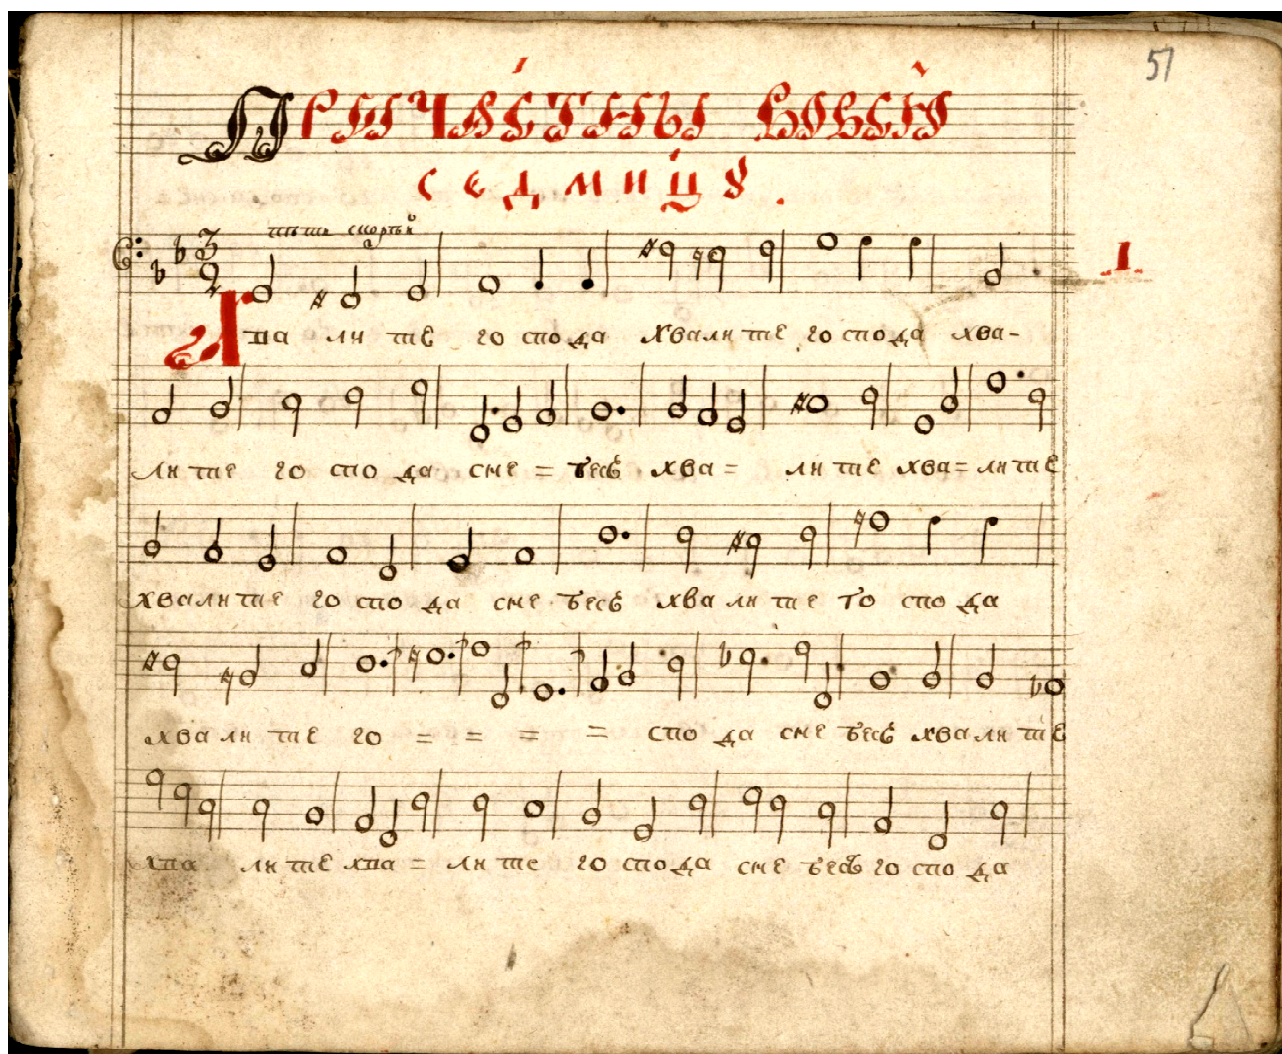 51
Причастны вовсю
седмицу.
1
Хва ли те го спо да хвали те го спо да хва-
ли те го спо да сне = бесъ хва = ли те хва = ли те
хвали те го спо да сне бесъ хва ли те го спо да
хва ли те го = = = = спо да сне бесъ хва ли те
хва ли те хва = ли те го спо да сне бесъ го спо да